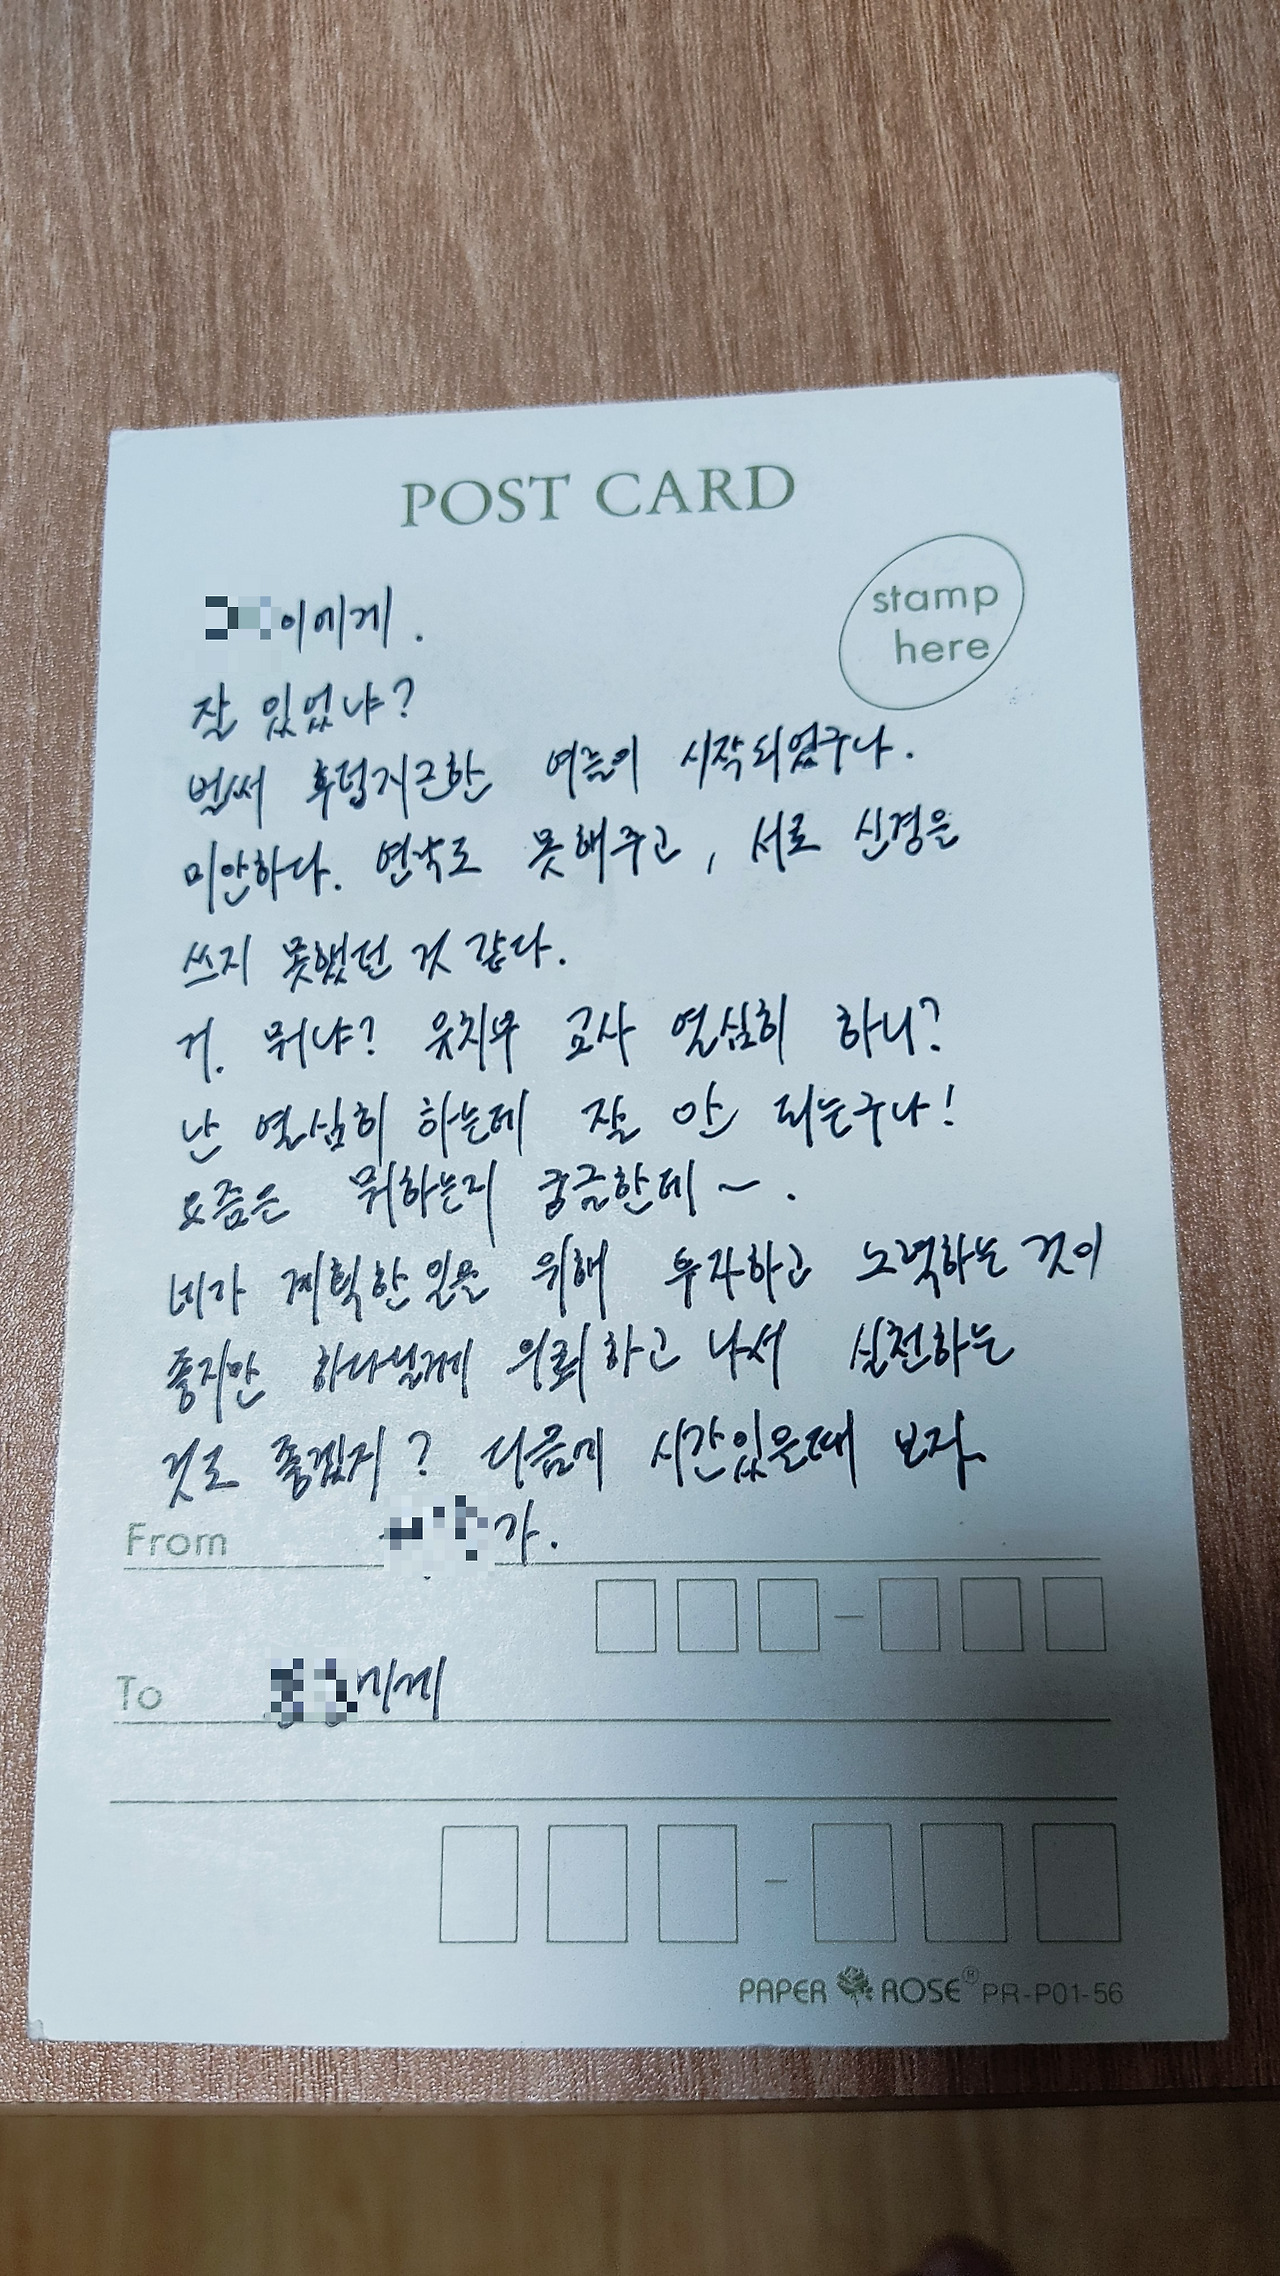 POST CARD
stamp
here
이에게.
잘 있었냐?
벌써 후덥지근한 여름이 시작되었구나.
미안하다. 연락도 못해주고, 서로 신경을
쓰지 못했던 것 같다.
거. 뭐냐? 유치부 교사 열심히 하니?
난 열심히 하는데 잘 안 되는구나!
요즘은 뭐하는지 궁금한데~.
네가 계획한 일을 위해 투자하고 노력하는 것이
좋지만 하나님께 의뢰하고 나서 실천하는
것도 좋겠지? 다음에 시간있을때 보자.
From 가.
To 에게
PAPER ROSE® PR-P01-56